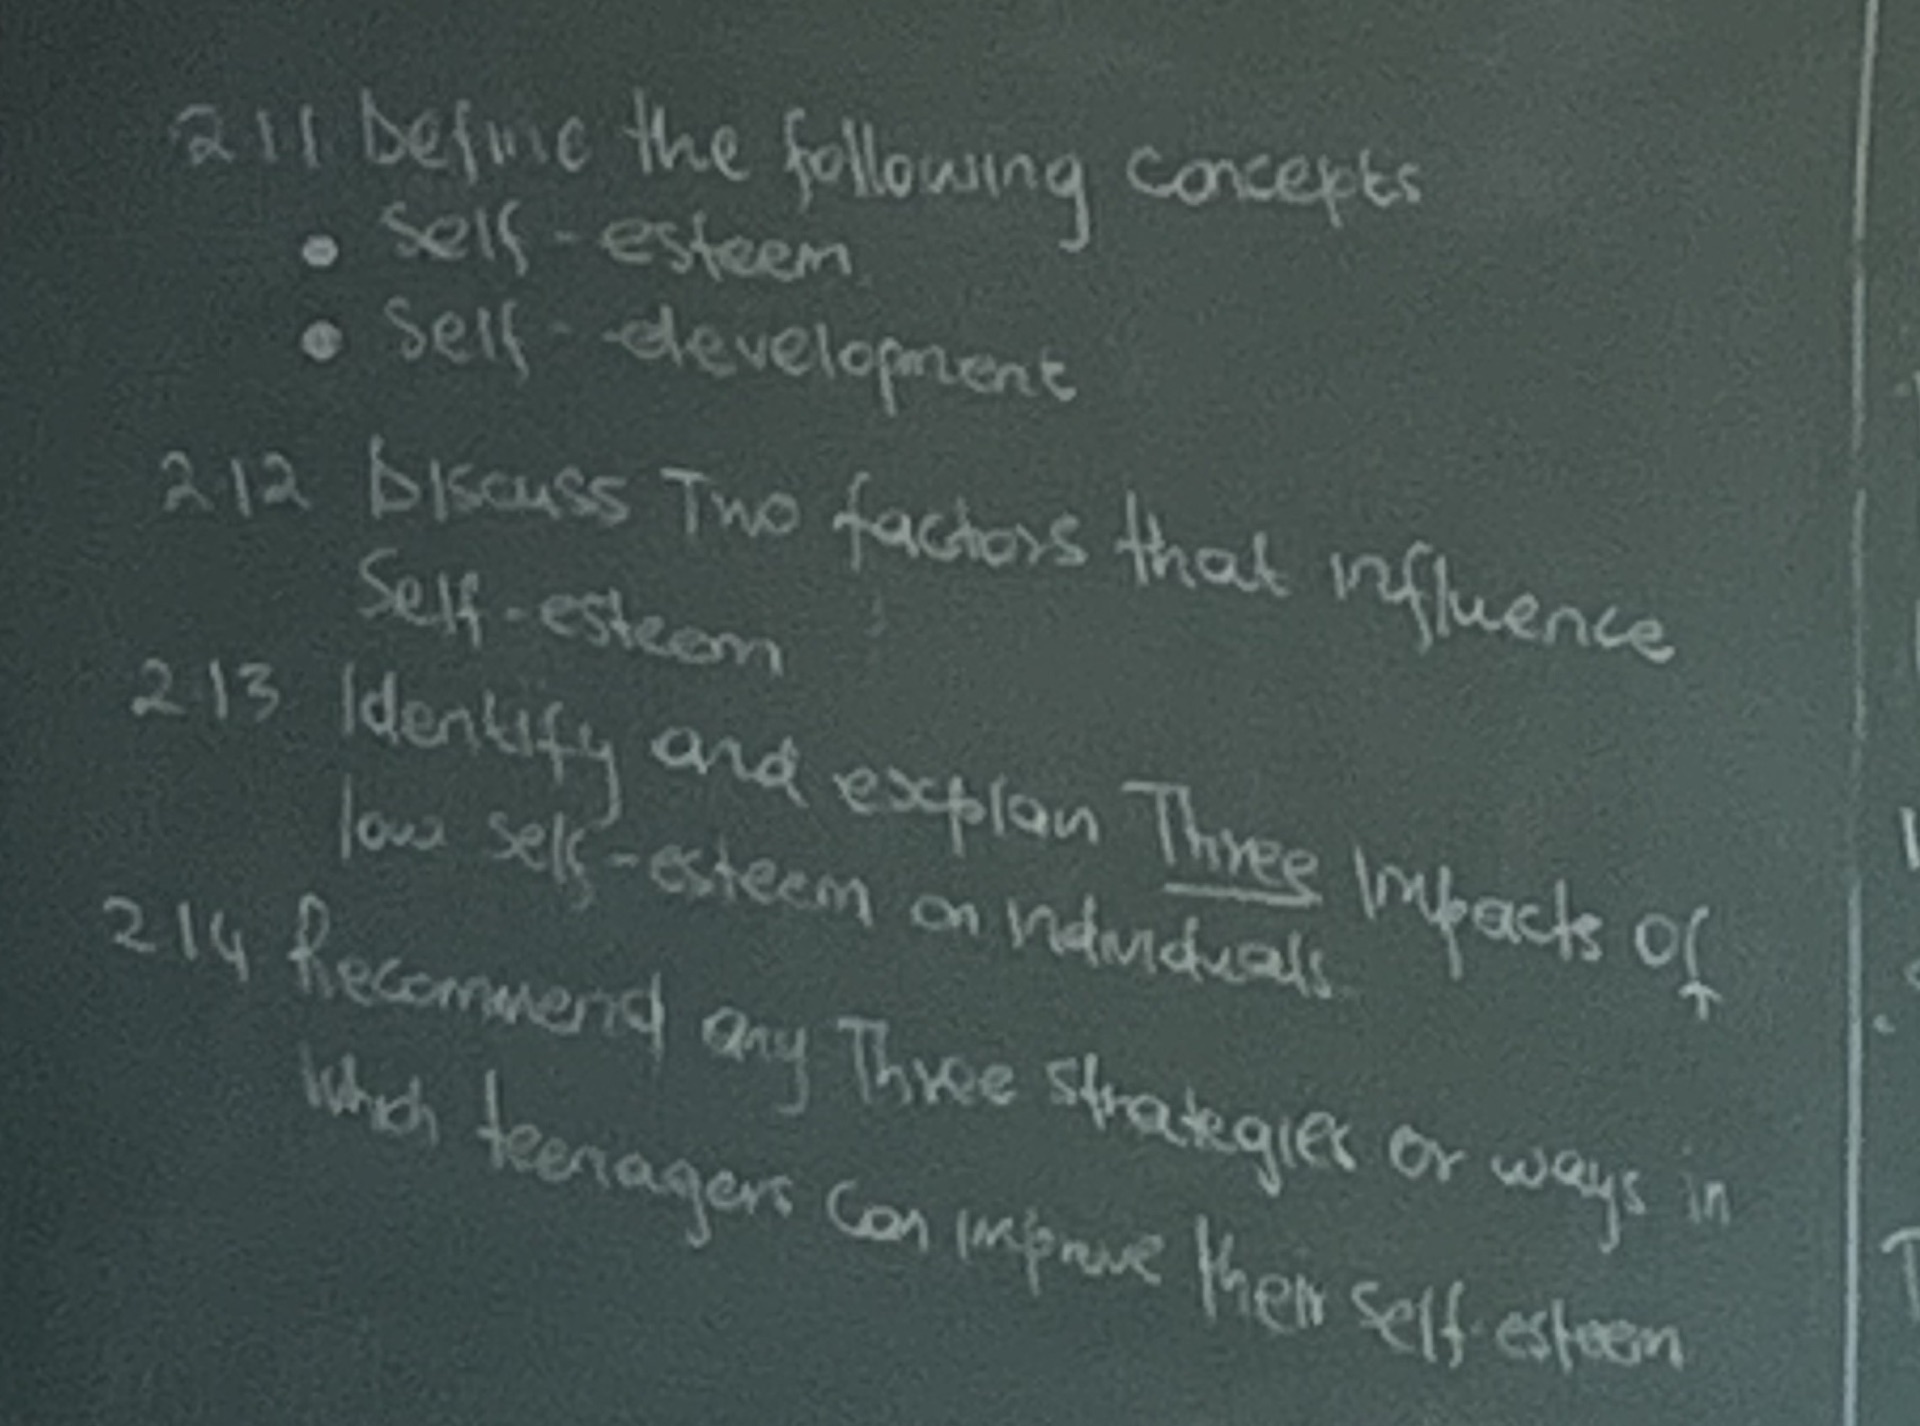 2.1.1 Define the following concepts
• Self-esteem
• Self-development
2.1.2 Discuss Two factors that influence
Self-esteem
2.1.3 Identify and explain Three impacts of
low self-esteem on individuals
2.1.4 Recommend any Three strategies or ways in
which teenagers can improve their self-esteem